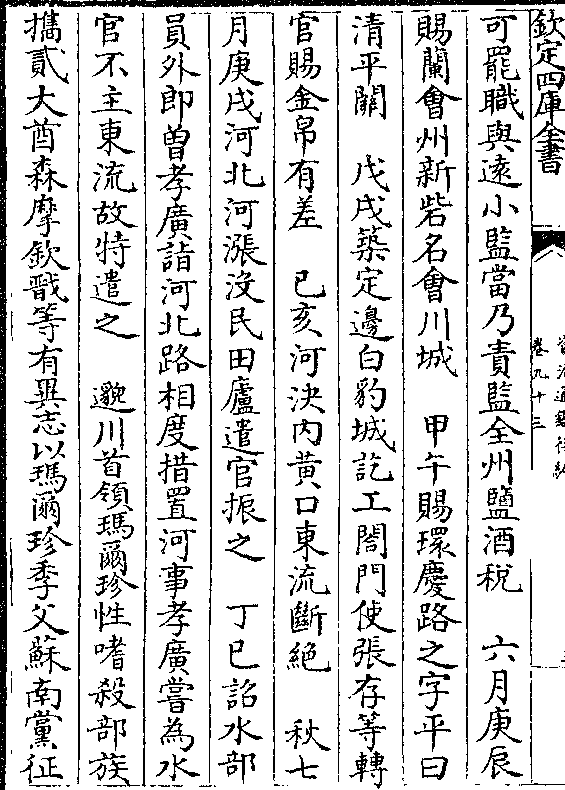 欽定四庫全書
卷九十三
可罷職與遠小監當乃責監全州鹽酒稅　六月庚辰
賜蘭會州新砦名會川城　甲午賜環慶路之字平曰
清平關　戊戌築定邊白豹城訖工閤門使張存等轉
官賜金帛有差　己亥河決內黃口東流斷絕　秋七
月庚戌河北河漲沒民田廬遣官振之　丁巳詔水部
員外郎曾孝廣詣河北路相度措置河事孝廣嘗為水
官不主東流故特遣之　邈川首領瑪爾珍性嗜殺部族
攜貳大酋森摩欽戩等有異志以瑪爾珍季父蘇南黨征